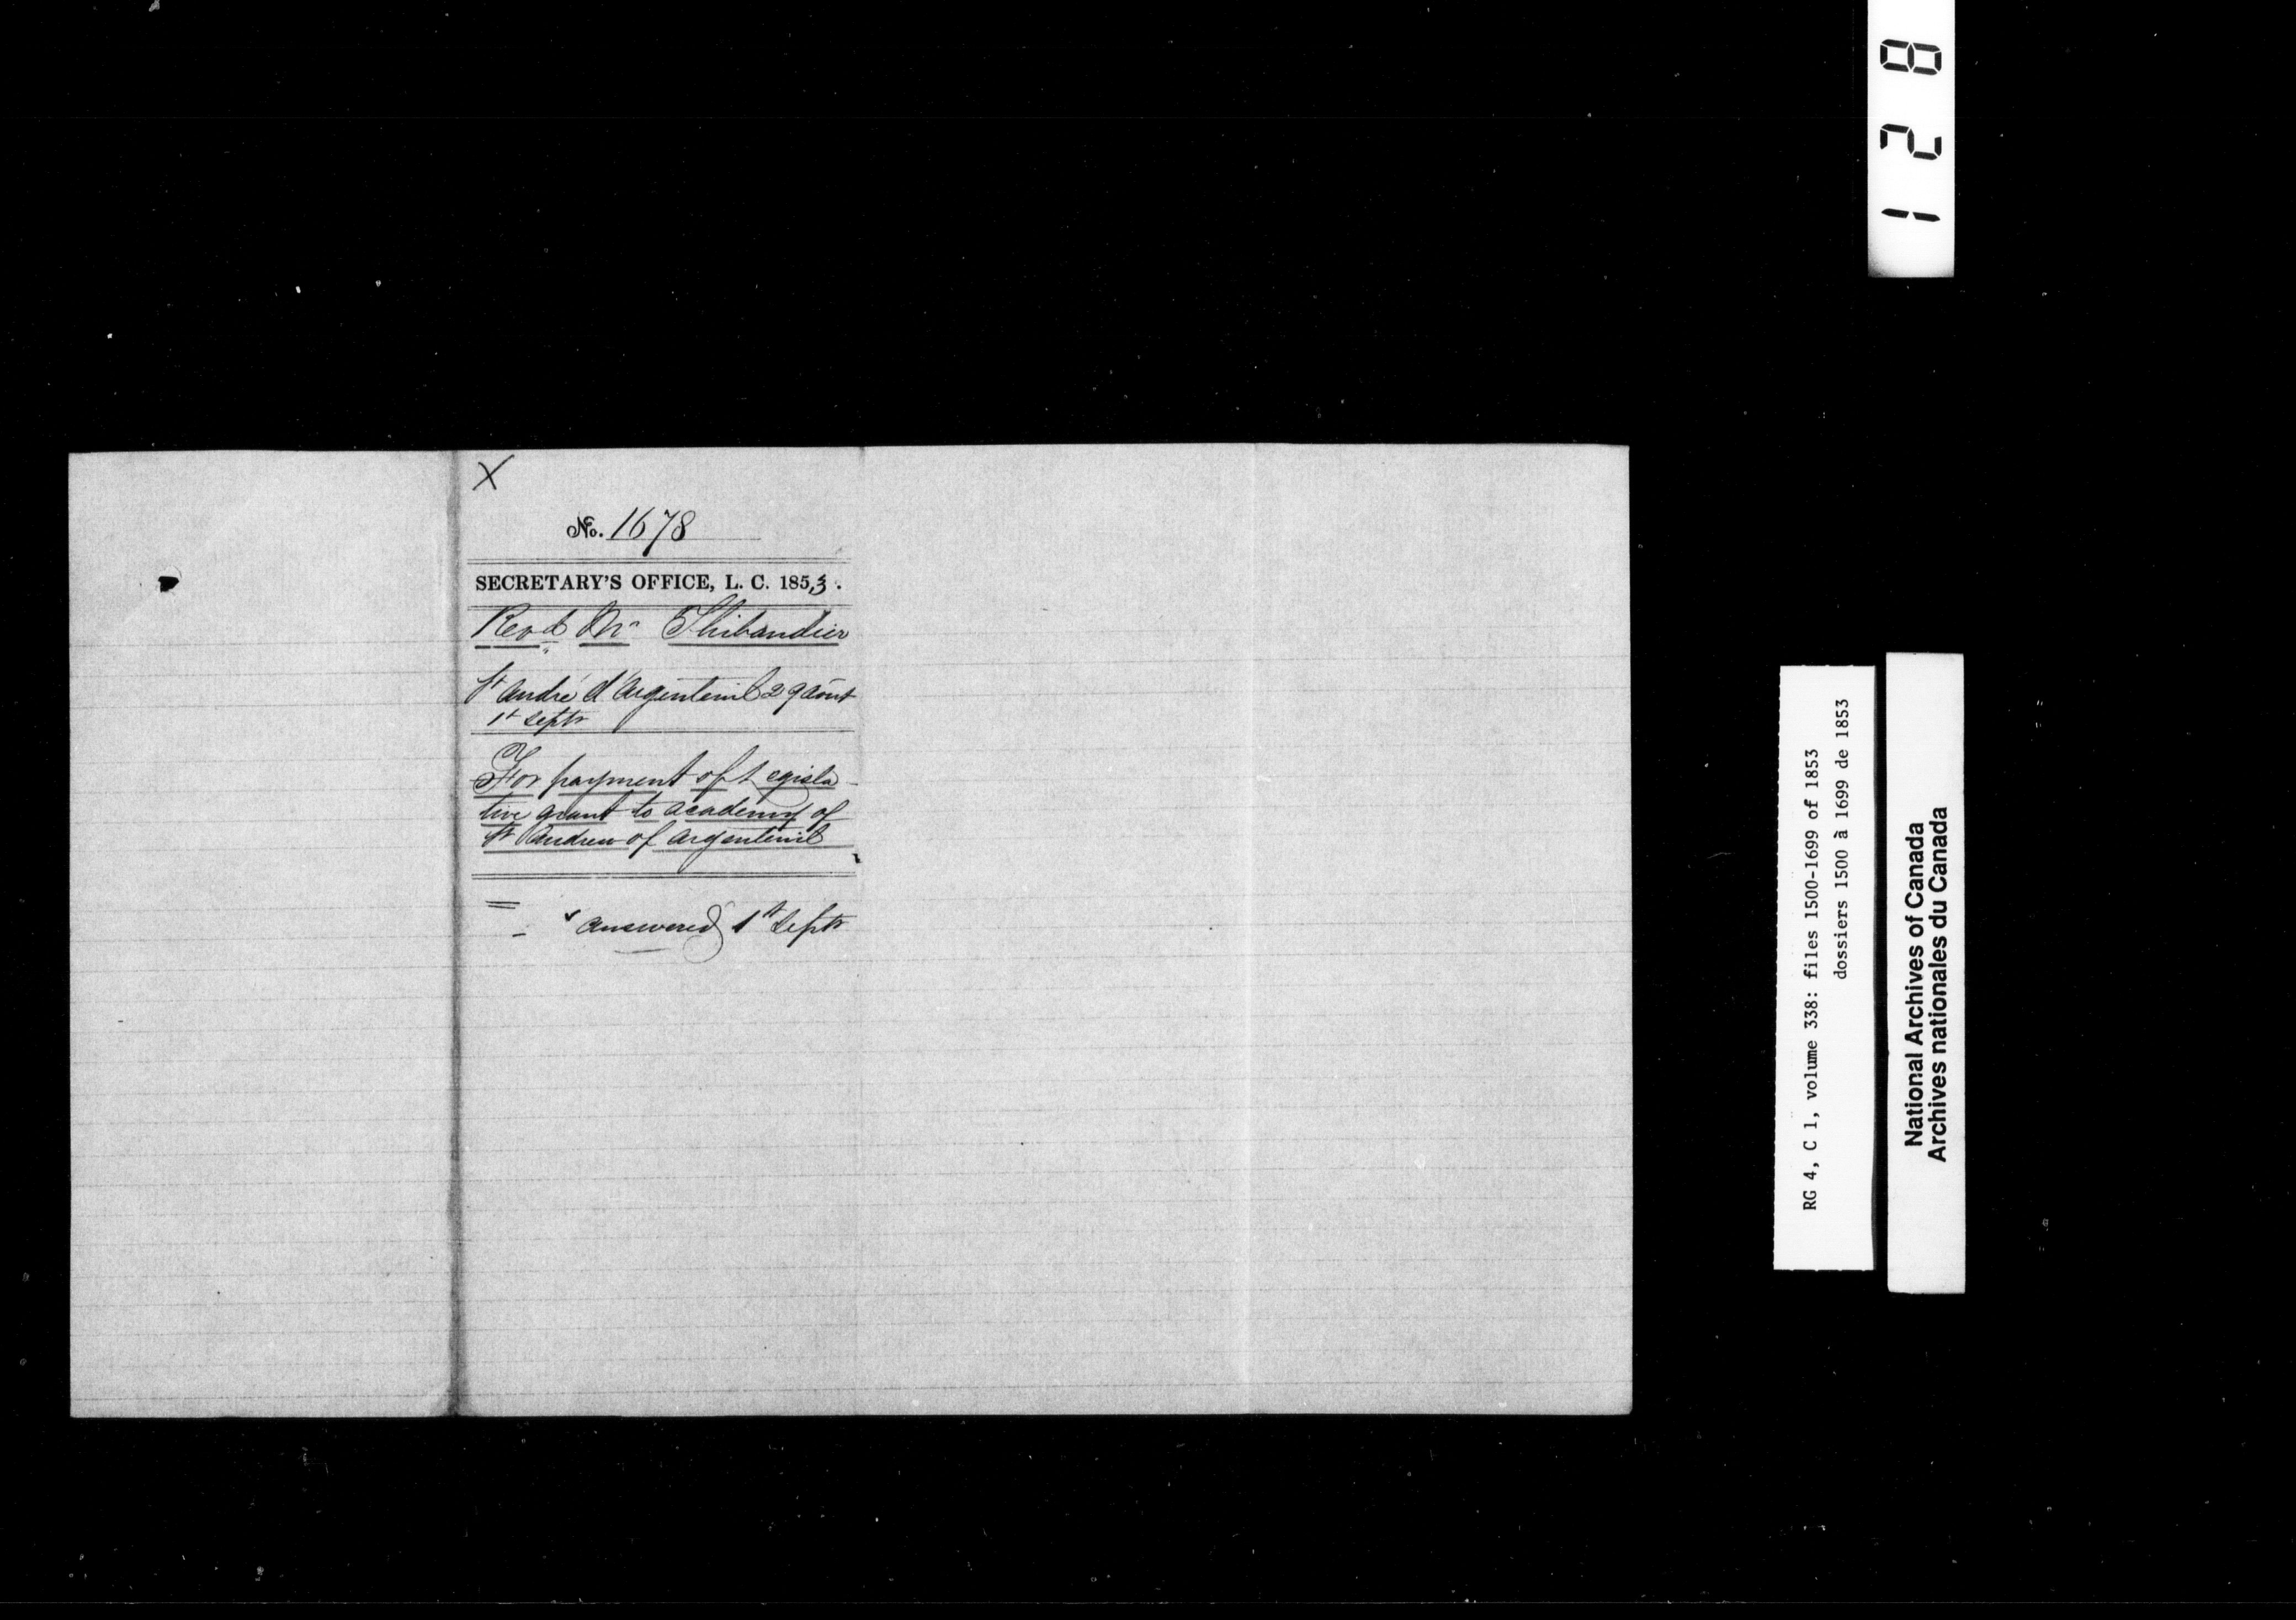 X
No. 1678
SECRETARY'S OFFICE, L. C. 1853.
Revd Mr Thibaudier
St André d'Argenteuil 29 août
1st Septr
For payment of Legisla-
tive grant to academy of
St Andrew of Argenteuil
answered 1st Septr
128
RG 4, C 1, volume 338: files 1500-1699 of 1853
dossiers 1500 à 1699 de 1853
National Archives of Canada
Archives nationales du Canada